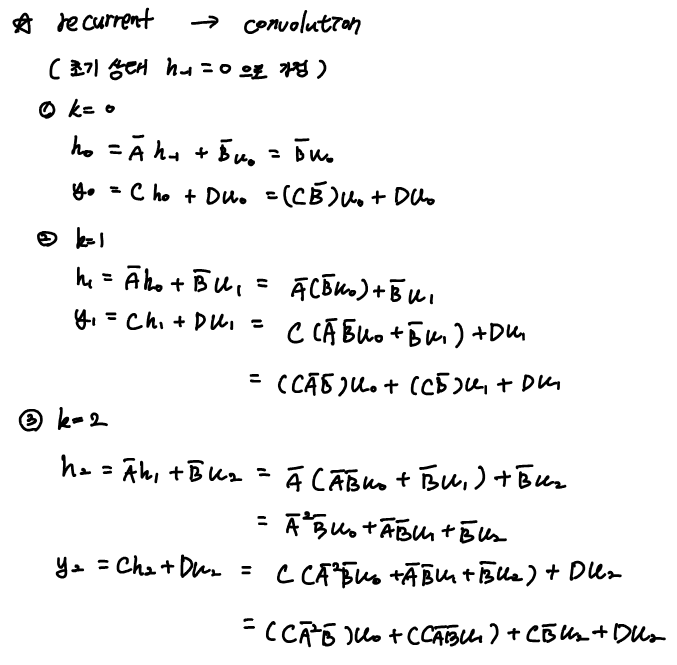 ☆ recurrent → convolution
( 초기 상태 h₋₁ = 0 으로 가정 )
① k = 0
h₀ = A̅ h₋₁ + B̅u₀ = B̅u₀
y₀ = C h₀ + Du₀ = (CB̅)u₀ + Du₀
② k=1
h₁ = A̅h₀ + B̅u₁ = A̅(B̅u₀) + B̅u₁
y₁ = Ch₁ + Du₁ = C (A̅B̅u₀ + B̅u₁) + Du₁
= (CA̅B̅)u₀ + (CB̅)u₁ + Du₁
③ k=2
h₂ = A̅h₁ + B̅u₂ = A̅ (A̅B̅u₀ + B̅u₁) + B̅u₂
= A̅²B̅u₀ + A̅B̅u₁ + B̅u₂
y₂ = Ch₂ + Du₂ = C (A̅²B̅u₀ + A̅B̅u₁ + B̅u₂) + Du₂
= (CA̅²B̅)u₀ + (CA̅B̅u₁) + CB̅u₂ + Du₂